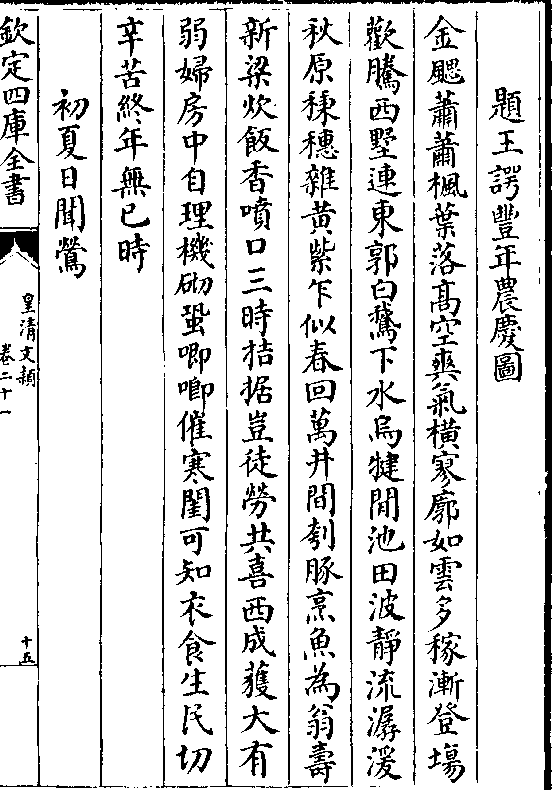 題王諤豐年農慶圖
金颸蕭蕭楓葉落高空爽氣橫寥廓如雲多稼漸登場
歡騰西墅連東郭白鵞下水烏犍閒池田波靜流潺湲
秋原𥞇穗雜黃紫乍似春回萬井間刳豚烹魚為翁壽
新粱炊飯香噴口三時拮据豈徒勞共喜西成獲大有
弱婦房中自理機砌蛩唧唧催寒閨可知衣食生民切
辛苦終年無已時
初夏日聞鶯
欽定四庫全書
皇清文穎
卷二十一
十五